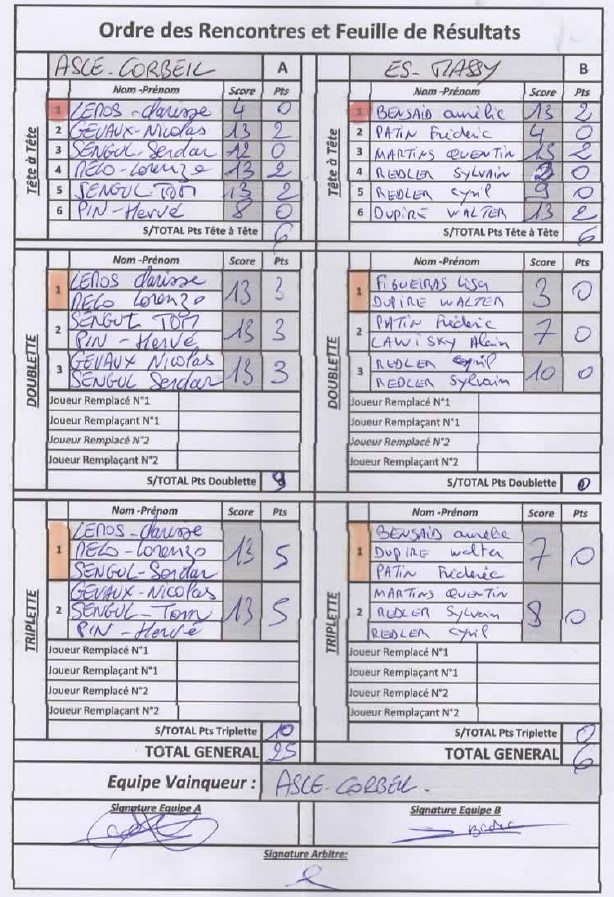 Ordre des Rencontres et Feuille de Résultats
ASCE-CORBEIL A
Tête à Tête
Nom -Prénom Score Pts
1 LEMOS - Clarisse 4 0
2 GEVAUX - Nicolas 13 2
3 SENGUL - Serdar 12 0
4 MELO - Lorenzo 13 2
5 SENGUL TOM 13 2
6 PIN - Hervé 8 0
S/TOTAL Pts Tête à Tête 6
ES-MASSY B
Tête à Tête
Nom -Prénom Score Pts
1 BENSAID aurélie 13 2
2 PATIN Frédéric 4 0
3 MARTINS QUENTIN 13 2
4 REDLER SYLVAIN 0
5 REDLER Cyril 9 0
6 DUPIRE WALTER 13 2
S/TOTAL Pts Tête à Tête 6
DOUBLETTE
Nom -Prénom Score Pts
1 LEMOS Clarisse
MELO Lorenzo 13 3
2 SENGUL TOM
PIN - Hervé 13 3
3 GEVAUX Nicolas
SENGUL Serdar 13 3
Joueur Remplacé N°1
Joueur Remplaçant N°1
Joueur Remplacé N°2
Joueur Remplaçant N°2
S/TOTAL Pts Doublette 9
DOUBLETTE
Nom -Prénom Score Pts
1 FIGUEIRAS Lisa
DUPIRE WALTER 3 0
2 PATIN Frédéric
LAWISKY Alain 7 0
3 REDLER Cyril
REDLER Sylvain 10 0
Joueur Remplacé N°1
Joueur Remplaçant N°1
Joueur Remplacé N°2
Joueur Remplaçant N°2
S/TOTAL Pts Doublette 0
TRIPLETTE
Nom -Prénom Score Pts
1 LEMOS - Clarisse
MELO - Lorenzo
SENGUL - Serdar 13 5
2 GEVAUX - NICOLAS
SENGUL - Tom
PIN - Hervé 13 5
Joueur Remplacé N°1
Joueur Remplaçant N°1
Joueur Remplacé N°2
Joueur Remplaçant N°2
S/TOTAL Pts Triplette 10
TOTAL GENERAL 25
TRIPLETTE
Nom -Prénom Score Pts
1 BENSAID aurélie
DUPIRE Walter
PATIN Frédéric 7 0
2 MARTINS QUENTIN
REDLER Sylvain
REDLER Cyril 8 0
Joueur Remplacé N°1
Joueur Remplaçant N°1
Joueur Remplacé N°2
Joueur Remplaçant N°2
S/TOTAL Pts Triplette 0
TOTAL GENERAL 6
Equipe Vainqueur : ASCE-CORBEIL.
Signature Equipe A
Signature Equipe B
Signature Arbitre: